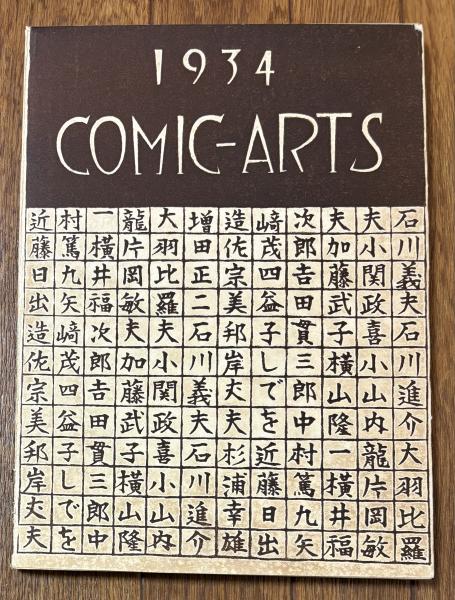 1934
COMIC-ARTS
石川義夫石川進介大羽比羅
夫小関政喜小山内龍片岡敏
夫加藤武子橫山隆一橫井福
次郎吉田貫三郎中村篤九矢
﨑茂四益子しでを近藤日出
造佐宗美邦岸丈夫杉浦幸雄
増田正二石川義夫石川進介
大羽比羅夫小関政喜小山内
龍片岡敏夫加藤武子橫山隆
一橫井福次郎吉田貫三郎中
村篤九矢﨑茂四益子しでを
近藤日出造佐宗美邦岸丈夫